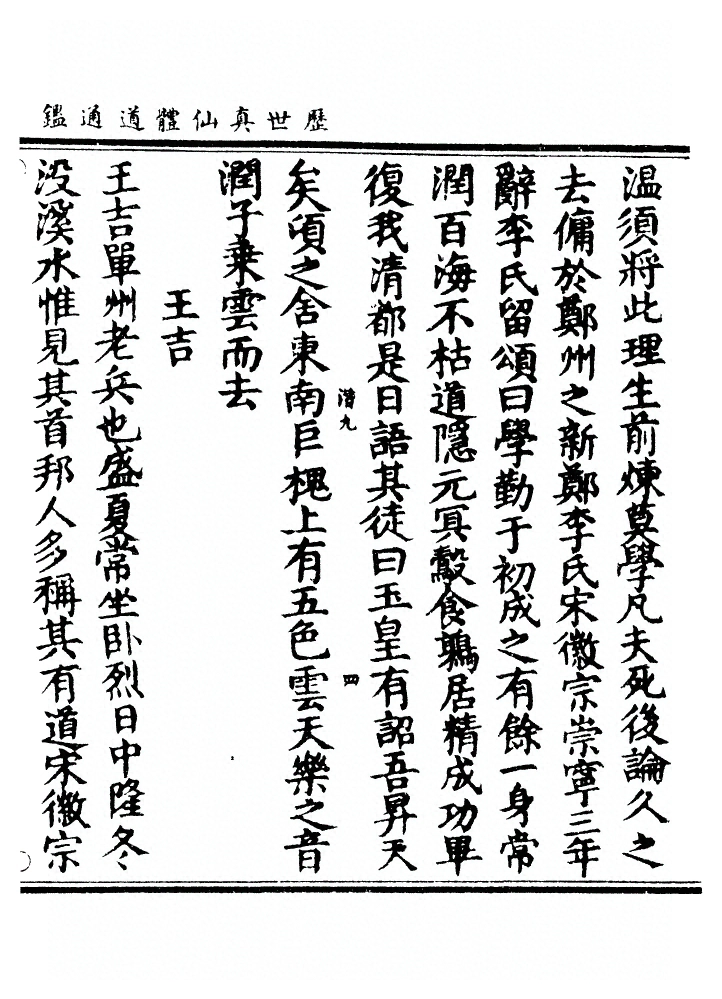 歷世真仙體道通鑑
温須將此理生前煉莫學凡夫死後論久之
去傭於鄭州之新鄭李氏宋徽宗崇寧三年
辭李氏留頌曰學勤于初成之有餘一身常
潤百海不枯道隱元冥鷇食鶉居精成功畢
復我清都是日語其徒曰玉皇有詔吾昇天
潛九
四
矣頃之舍東南巨槐上有五色雲天樂之音
潤子乗雲而去
王吉
王吉單州老兵也盛夏常坐卧烈日中隆冬
没溪水惟見其首邦人多稱其有道宋徽宗